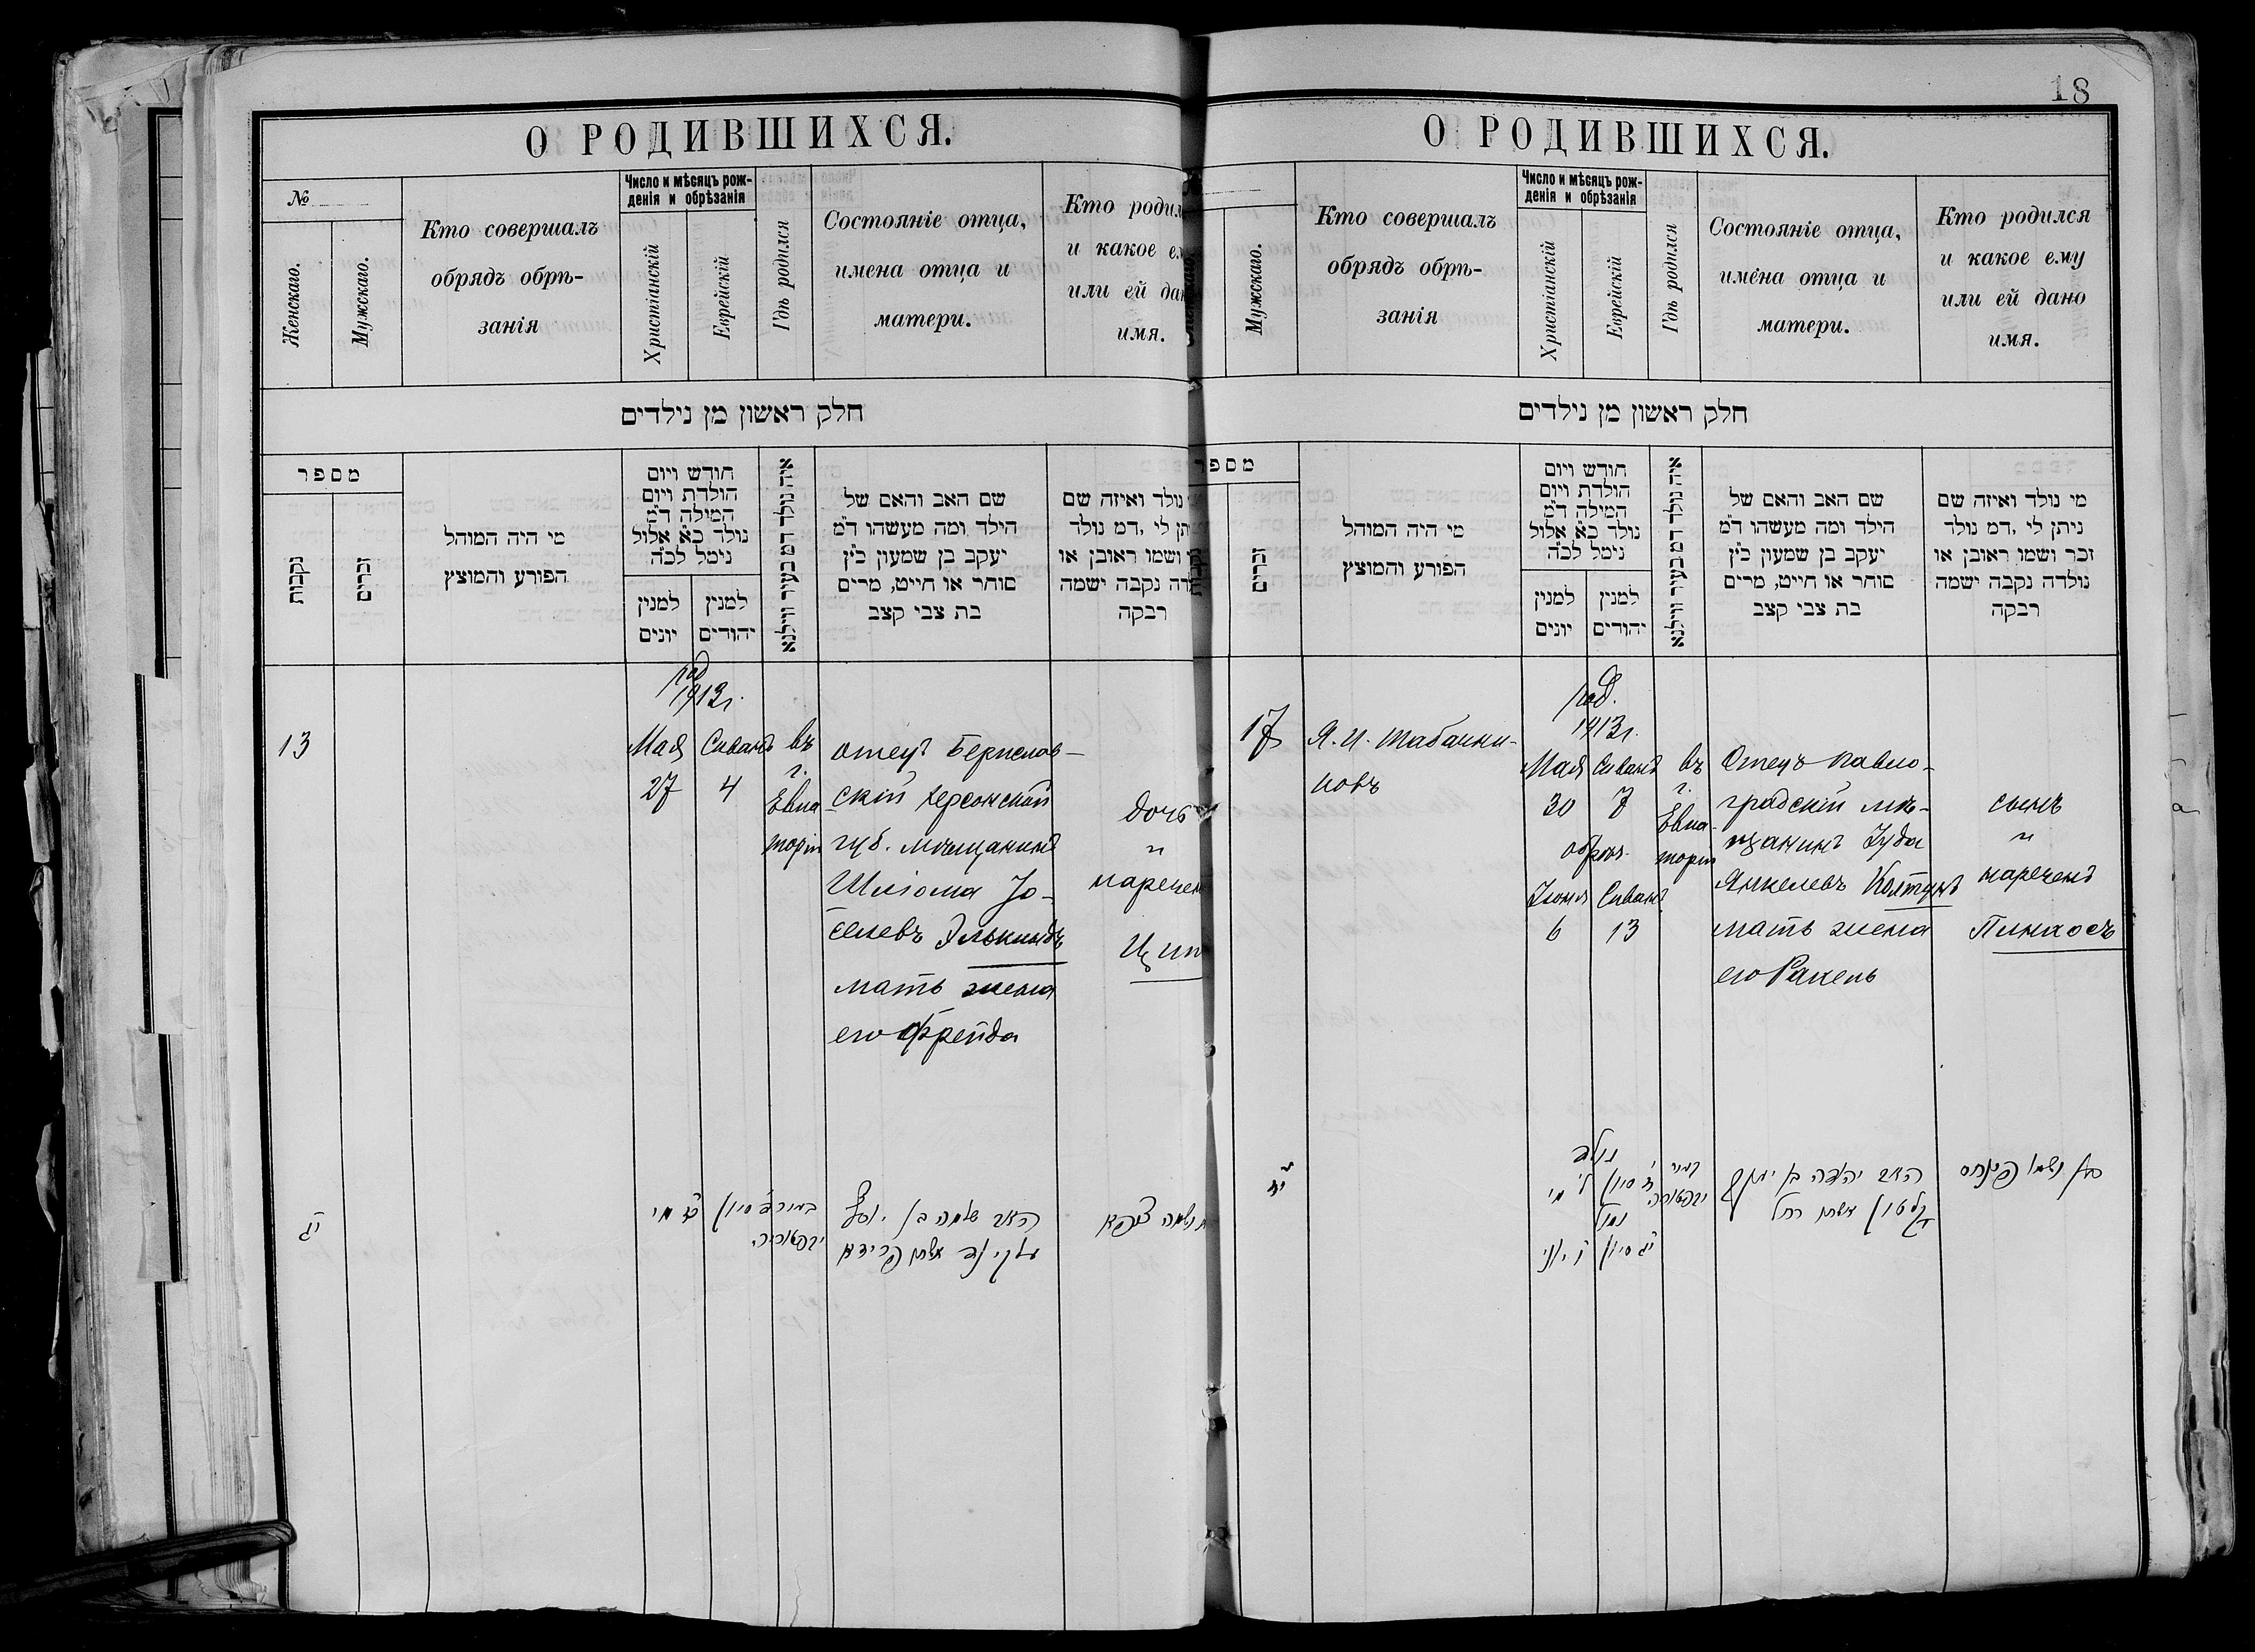 18
О РОДИВШИХСЯ.
№
Женскаго.
Мужскаго.
Кто совершалъ
обрядъ обрѣ-
занія
Число и мѣсяцъ рож-
денія и обрѣзанія
Христіанскій
Еврейскій
Гдѣ родился
Состояніе отца,
имена отца и
матери.
Кто родил
и какое е
или ей дан
имя.
חלק ראשון מן נילדים
מספר
נקבות
זכרים
מי היה המוהל
הפורע והמוצץ
חודש ויום
הולדת ויום
המילה ד״מ
נולד כ״א אלול
נימל לכ״ה
למנין
יונים
למנין
יהודים
איה נולד דמ בעיר ווילנא
שם האב והאם של
הילד ומה מעשהו ד״מ
יעקב בן שמעון כ״ץ
סוחר או חייט, מרים
בת צבי קצב
נולד ואיזה שם
יתן לי ,דמ נולד
ושמו ראובן או
דה נקבה ישמה
רבקה
13
год
1913 г.
Мая
27
Сиванъ
4
въ
г.
Евпа
торіи
отецъ Берислав-
скій Херсонской
губ. мѣщанинъ
Шліома Іо-
селевъ Элькиндъ
мать жена
его Фрейда
дочь
"
наречен
Цип
י״ג
כ״ז מי
ד׳ סיון
בעיר
יבפטוריה
האב שלמה בן יוסף
עלקינד אשתו פריידא
ושמה ציפא
О РОДИВШИХСЯ.
Мужскаго.
Кто совершалъ
обрядъ обрѣ-
занія
Число и мѣсяцъ рож-
денія и обрѣзанія
Христіанскій
Еврейскій
Гдѣ родился
Состояніе отца,
имена отца и
матери.
Кто родился
и какое ему
или ей дано
имя.
חלק ראשון מן נילדים
מספר
זכרים
מי היה המוהל
הפורע והמוצץ
חודש ויום
הולדת ויום
המילה ד״מ
נולד כ״א אלול
נימל לכ״ה
למנין
יונים
למנין
יהודים
איה נולד דמ בעיר ווילנא
שם האב והאם של
הילד ומה מעשהו ד״מ
יעקב בן שמעון כ״ץ
סוחר או חייט, מרים
בת צבי קצב
מי נולד ואיזה שם
ניתן לי ,דמ נולד
זכר ושמו ראובן או
נולדה נקבה ישמה
רבקה
17
Я. И. Табачни-
ковъ
год.
1913 г.
Мая
30
Сиванъ
7
обрѣз.
Іюня
6
Сиванъ
13
въ
г.
Евпа-
торіи
Отецъ Павло-
градскій мѣ-
щанинъ Іуда
Янкелевъ Колтунъ
мать жена
его Рахель
сынъ
"
нареченъ
Пинхосъ
י״ז
נולד
ל׳ מי
ז׳ סיון
נמול
ו׳ יוני
י״ג סיון
בעיר
יבפטוריה
האב יהודה בן יעקב
קלטון אשתו רחל
בן ושמו פינחס